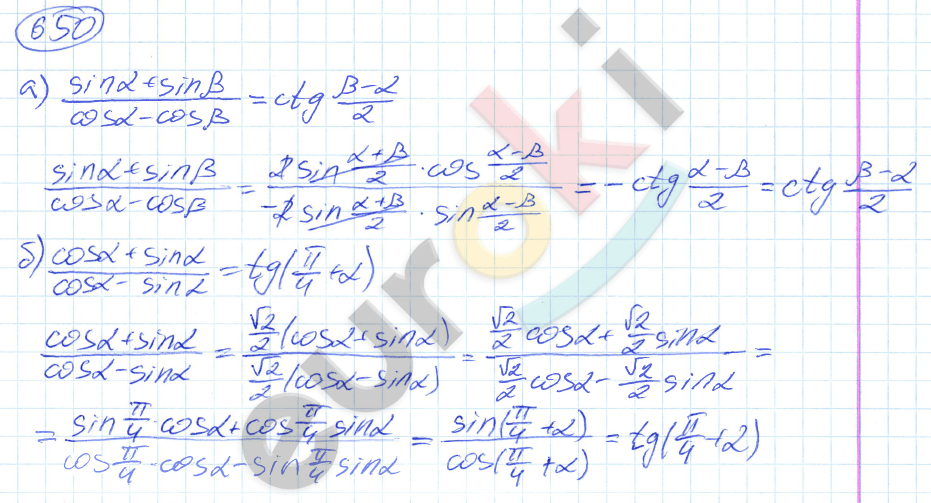 650
а) (sinα+sinβ)/(cosα−cosβ) = ctg (β−α)/2
(sinα+sinβ)/(cosα−cosβ) = (2 sin (α+β)/2 · cos (α−β)/2)/(−2 sin (α+β)/2 · sin (α−β)/2) = −ctg (α−β)/2 = ctg (β−α)/2
б) (cosα+sinα)/(cosα−sinα) = tg(π/4+α)
(cosα+sinα)/(cosα−sinα) = (√2/2(cosα+sinα))/(√2/2(cosα−sinα)) = (√2/2 cosα+√2/2 sinα)/(√2/2 cosα−√2/2 sinα) =
= (sin π/4·cosα+cos π/4 sinα)/(cos π/4·cosα−sin π/4 sinα) = sin(π/4+α)/cos(π/4+α) = tg(π/4+α)
euroki